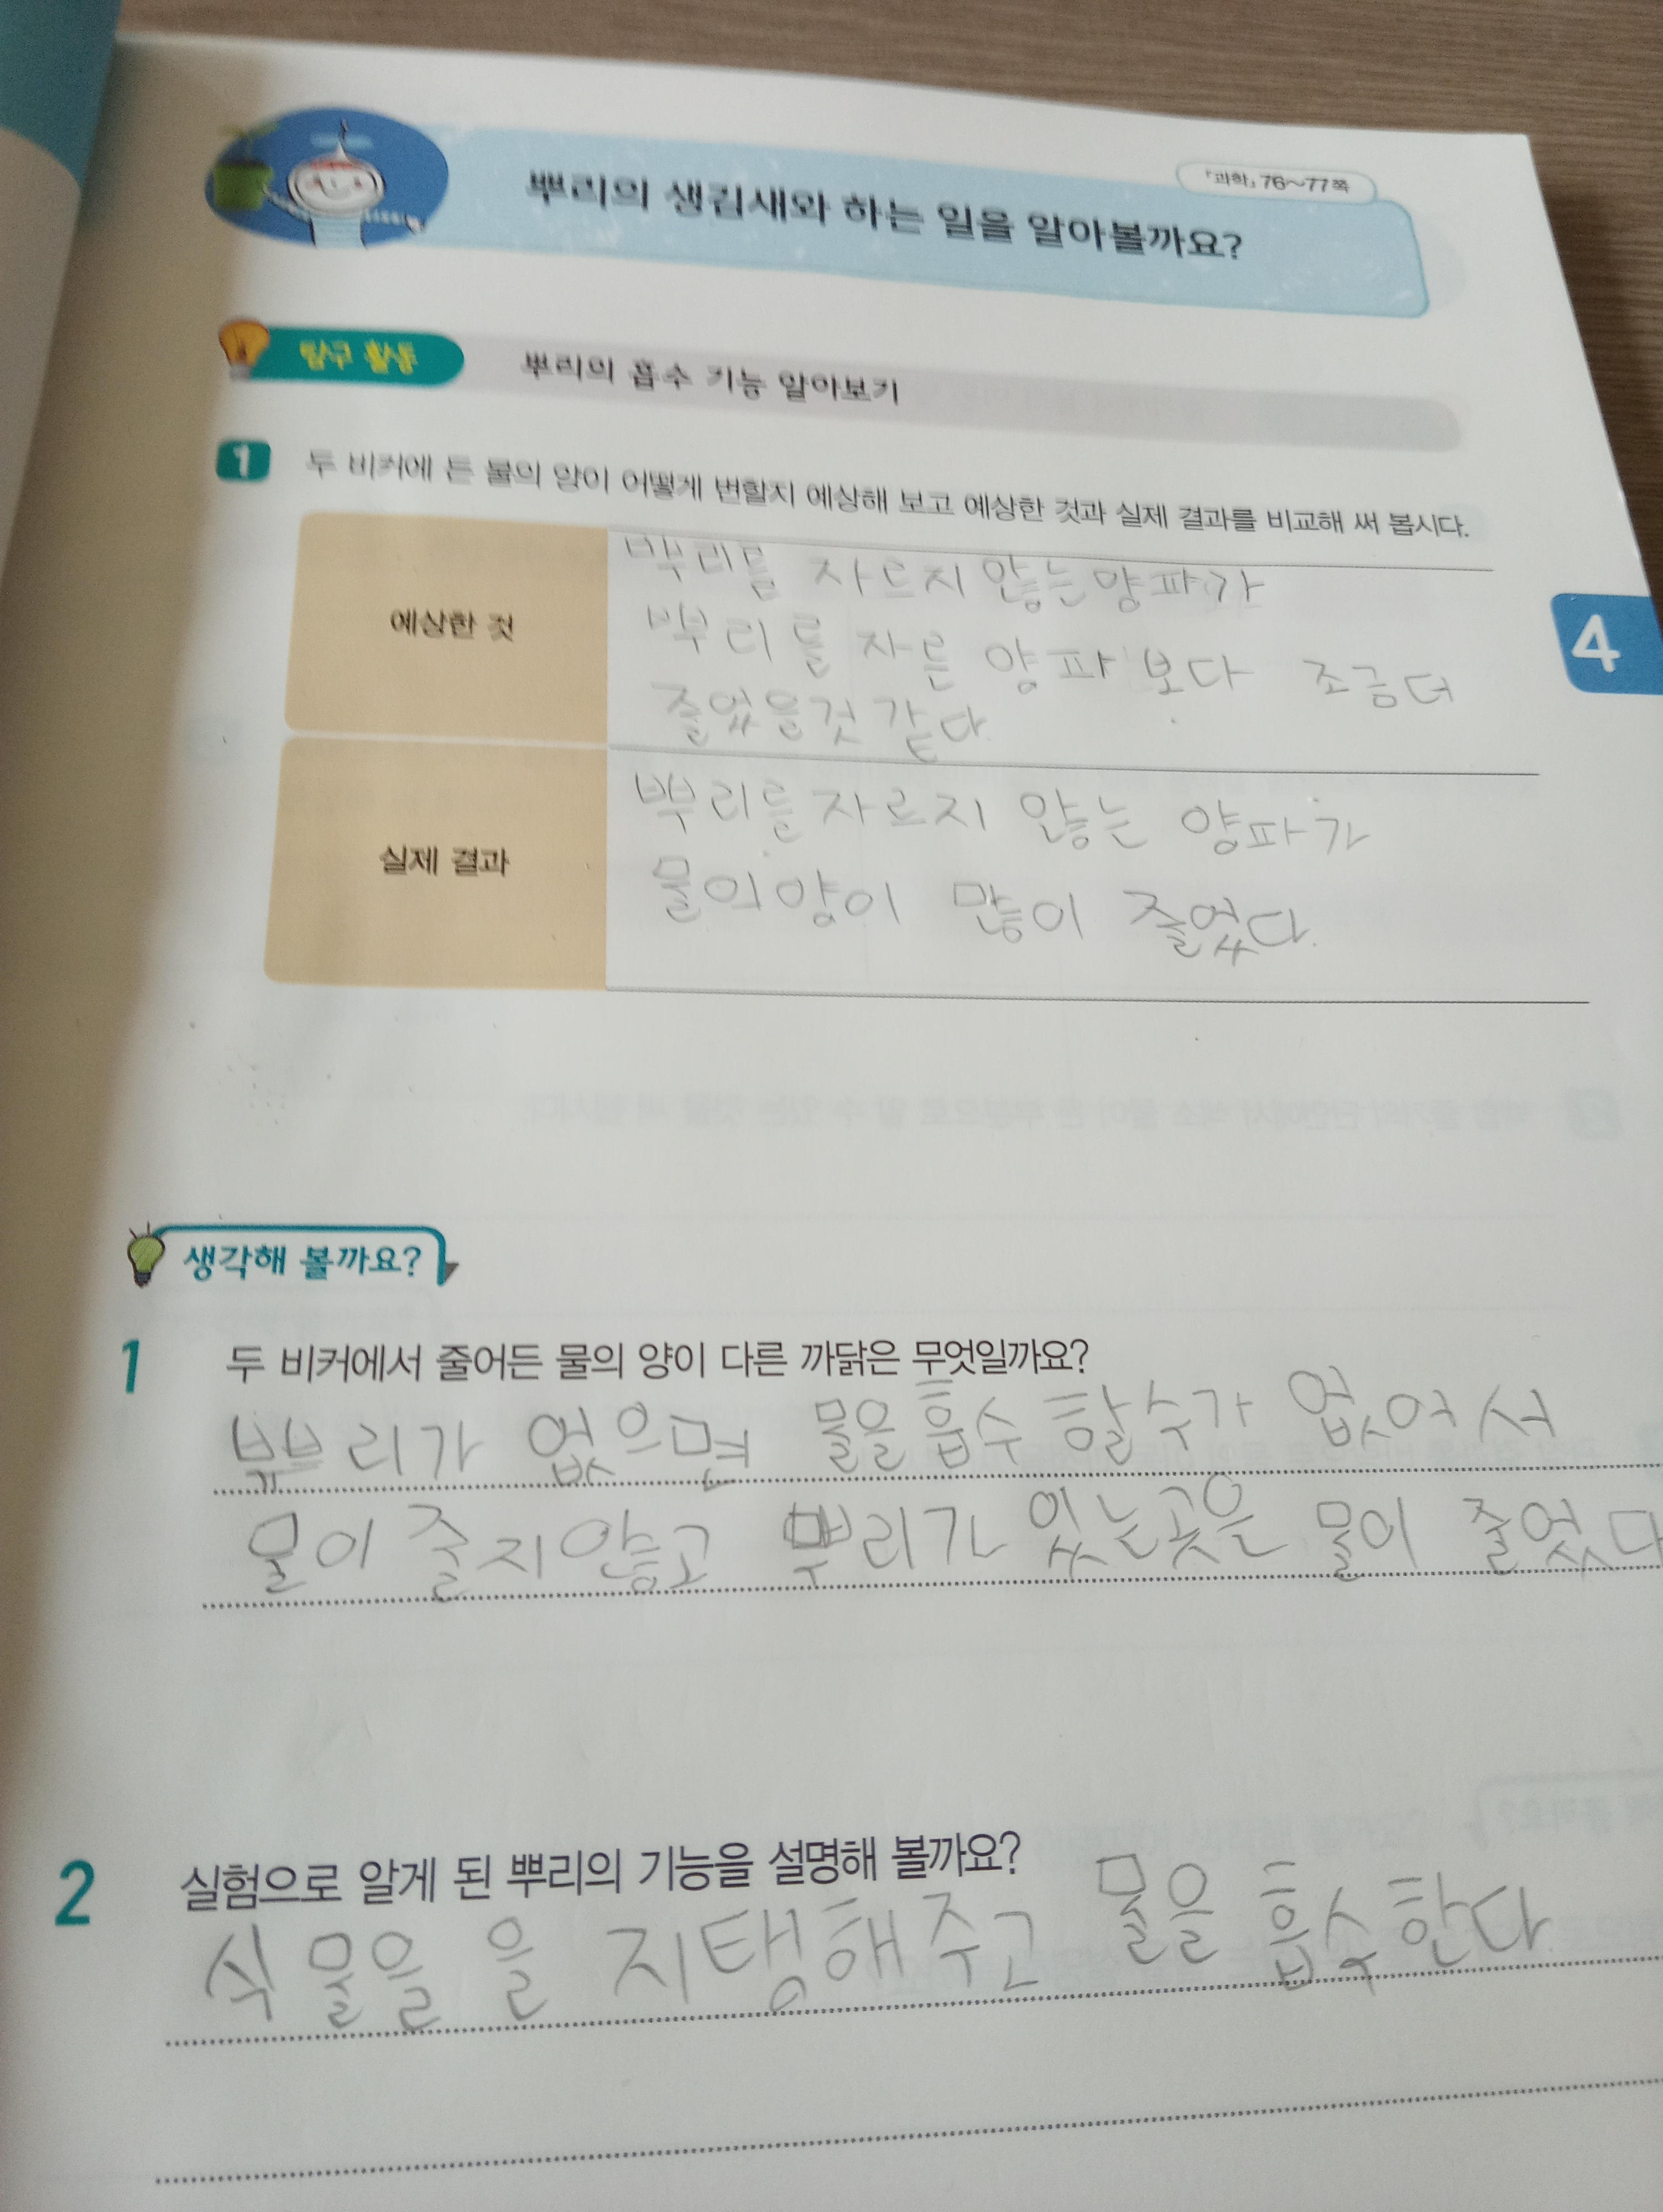 『과학』 76~77쪽
뿌리의 생김새와 하는 일을 알아볼까요?
탐구 활동
뿌리의 흡수 기능 알아보기
1 두 비커에 든 물의 양이 어떻게 변할지 예상해 보고 예상한 것과 실제 결과를 비교해 써 봅시다.
예상한 것
뿌리를 자르지 않는양파가
뿌리를 자른 양파보다 조금더
줄었을것 같다.
4
실제 결과
뿌리를자르지 않는 양파가
물의양이 많이 줄었다.
생각해 볼까요?
1 두 비커에서 줄어든 물의 양이 다른 까닭은 무엇일까요?
뿌리가 없으면 물을흡수 할수가 없어서
물이 줄지않고 뿌리가 있는곳은 물이 줄었다
2 실험으로 알게 된 뿌리의 기능을 설명해 볼까요?
식물을 을 지탱해주고 물을 흡수한다.